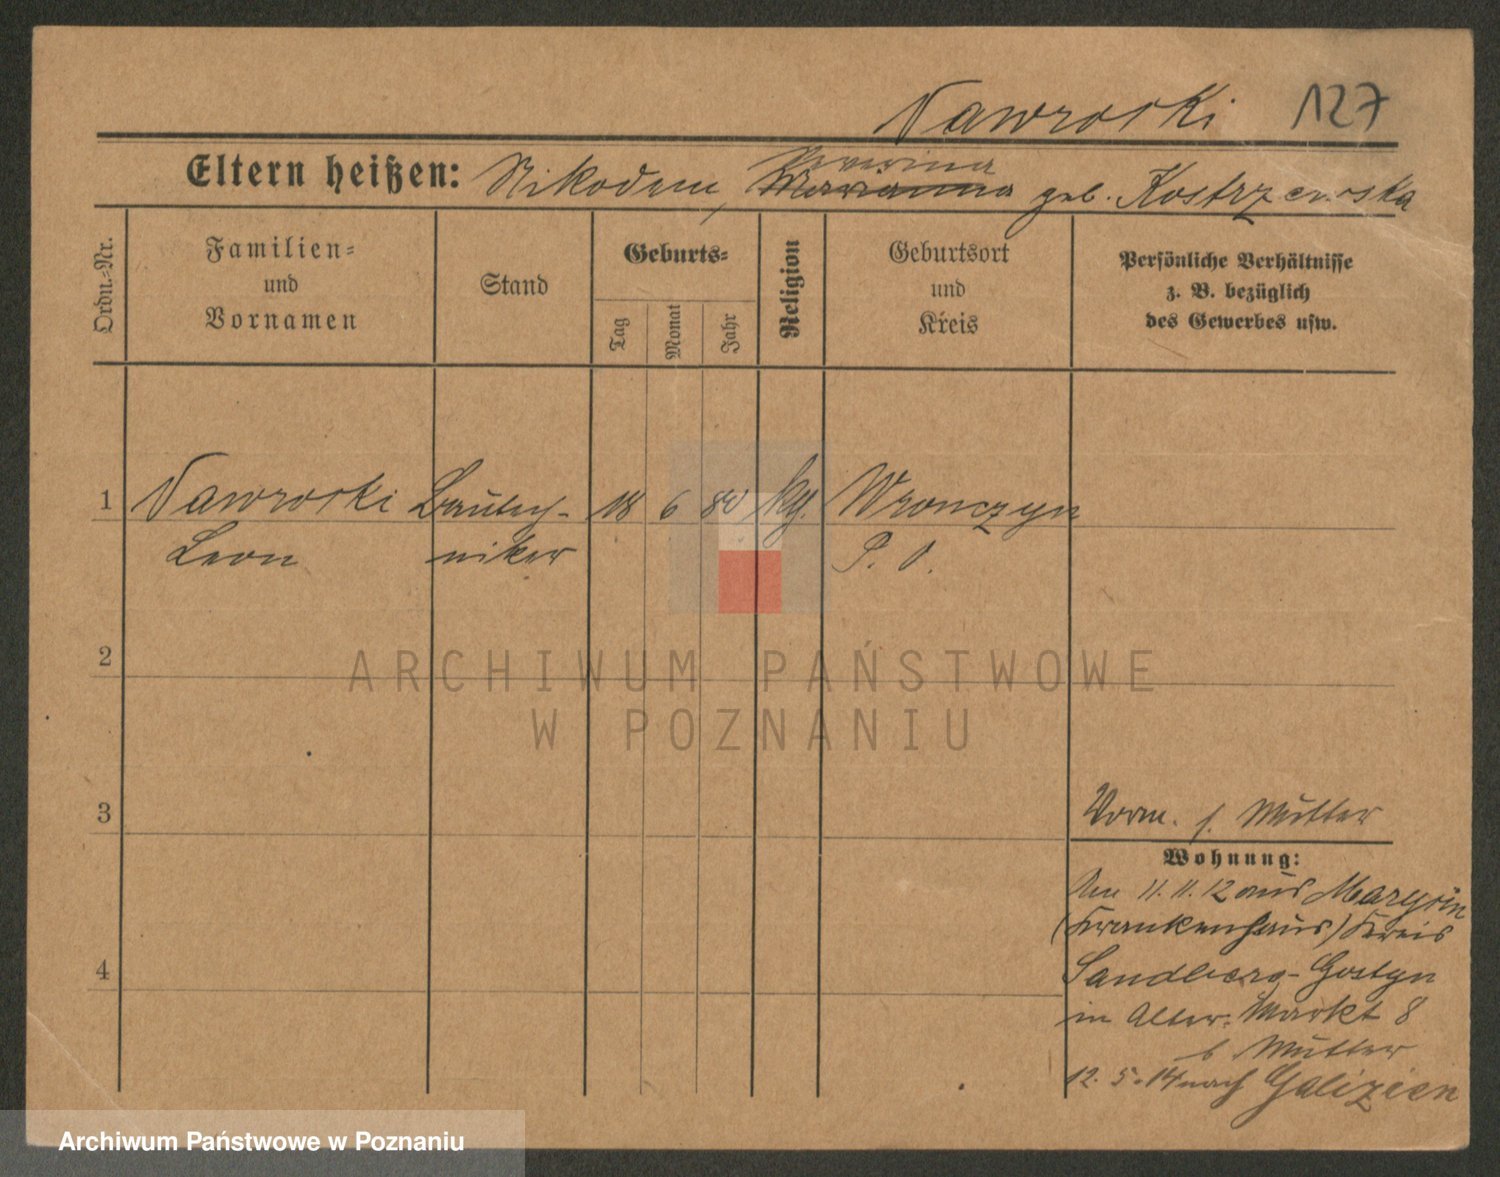 Nawrocki 127
Eltern heißen: Nikodem, Severina Marianna geb. Kostrzewska
Ordn.-Nr.
Familien-
und
Vornamen
Stand
Geburts-
Tag
Monat
Jahr
Religion
Geburtsort
und
Kreis
Persönliche Verhältnisse
z. B. bezüglich
des Gewerbes usw.
1 Nawrocki Bautech- 18 6 80 kg. Wronczyn
Leon niker P. O.
2
3
4
Vorm. s. Mutter
Wohnung:
Am 11.11.12 aus Marysin
(Krankenhaus) Kreis
Sandberg-Gostyn
in Alter-Markt 8
b Mutter
12.5.14 nach Galizien
ARCHIWUM PAŃSTWOWE
W POZNANIU
Archiwum Państwowe w Poznaniu